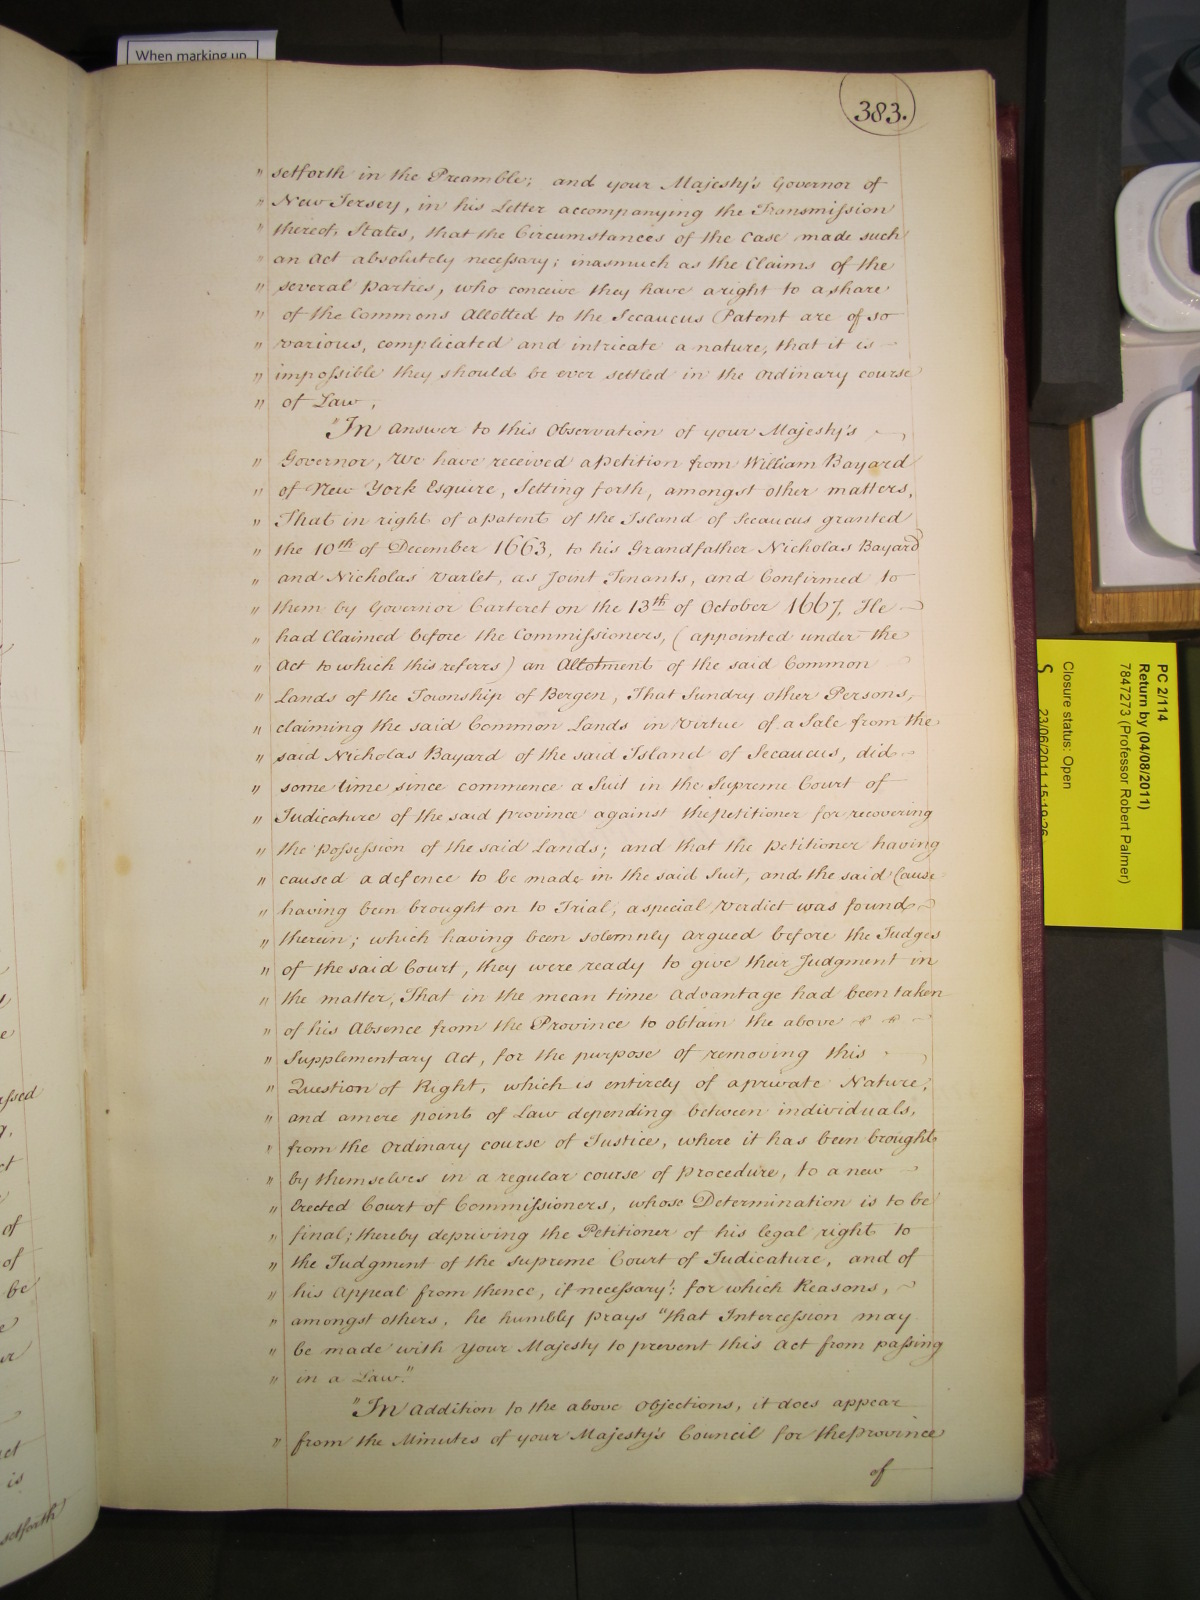 When marking up
383.
" setforth in the Preamble; and your Majesty's Governor of
" New Jersey, in his Letter accompanying the Transmission
" thereof, States, that the Circumstances of the Case made such
" an Act absolutely necessary; inasmuch as the Claims of the
" several Parties, who conceive they have a right to a share
" of the Commons Allotted to the Secaucus Patent are of so
" various, complicated and intricate a nature, that it is
" impossible they should be ever settled in the Ordinary course
" of Law,
"In Answer to this Observation of your Majesty's
" Governor, We have received a Petition from William Bayard
" of New York Esquire, Setting forth, amongst other matters,
" That in right of a patent of the Island of Secaucus granted
" the 10th of December 1663, to his Grandfather Nicholas Bayard
" and Nicholas Varlet, as Joint Tenants, and Confirmed to
" them by Governor Carteret on the 13th of October 1667, He
" had Claimed before the Commissioners, (appointed under the
" Act to which this referrs) an Allotment of the said Common
" Lands of the Township of Bergen, That Sundry other Persons,
" claiming the said Common Lands in Virtue of a Sale from the
" said Nicholas Bayard of the said Island of Secaucus, did
" some time since commence a Suit in the Supreme Court of
" Judicature of the said province against the petitioner for recovering
" the Possession of the said Lands; and that the Petitioner having
" caused a defence to be made in the said Suit, and the said Cause
" having been brought on to Trial, a special Verdict was found
" therein; which having been solemnly argued before the Judges
" of the said Court, they were ready to give their Judgment in
" the matter, That in the mean time Advantage had been taken
" of his Absence from the Province to obtain the above
" Supplementary Act, for the purpose of removing this
" Question of Right, which is entirely of a private Nature,
" and a mere point of Law depending between individuals,
" from the Ordinary course of Justice, where it has been brought
" by themselves in a regular course of Procedure, to a new
" Erected Court of Commissioners, whose Determination is to be
" final; thereby depriving the Petitioner of his legal right to
" the Judgment of the Supreme Court of Judicature, and of
" his Appeal from thence, if necessary: for which Reasons,
" amongst others, he humbly prays "that Intercession may
" be made with Your Majesty to prevent this Act from passing
" in a Law."
"In Addition to the above Objections, it does appear
" from the Minutes of your Majesty's Council for the Province
of
of
of
be
is
setforth
PC 2/114
Return by (04/08/2011)
7847273 (Professor Robert Palmer)
Closure status: Open
23/06/2011 15:19:26
S